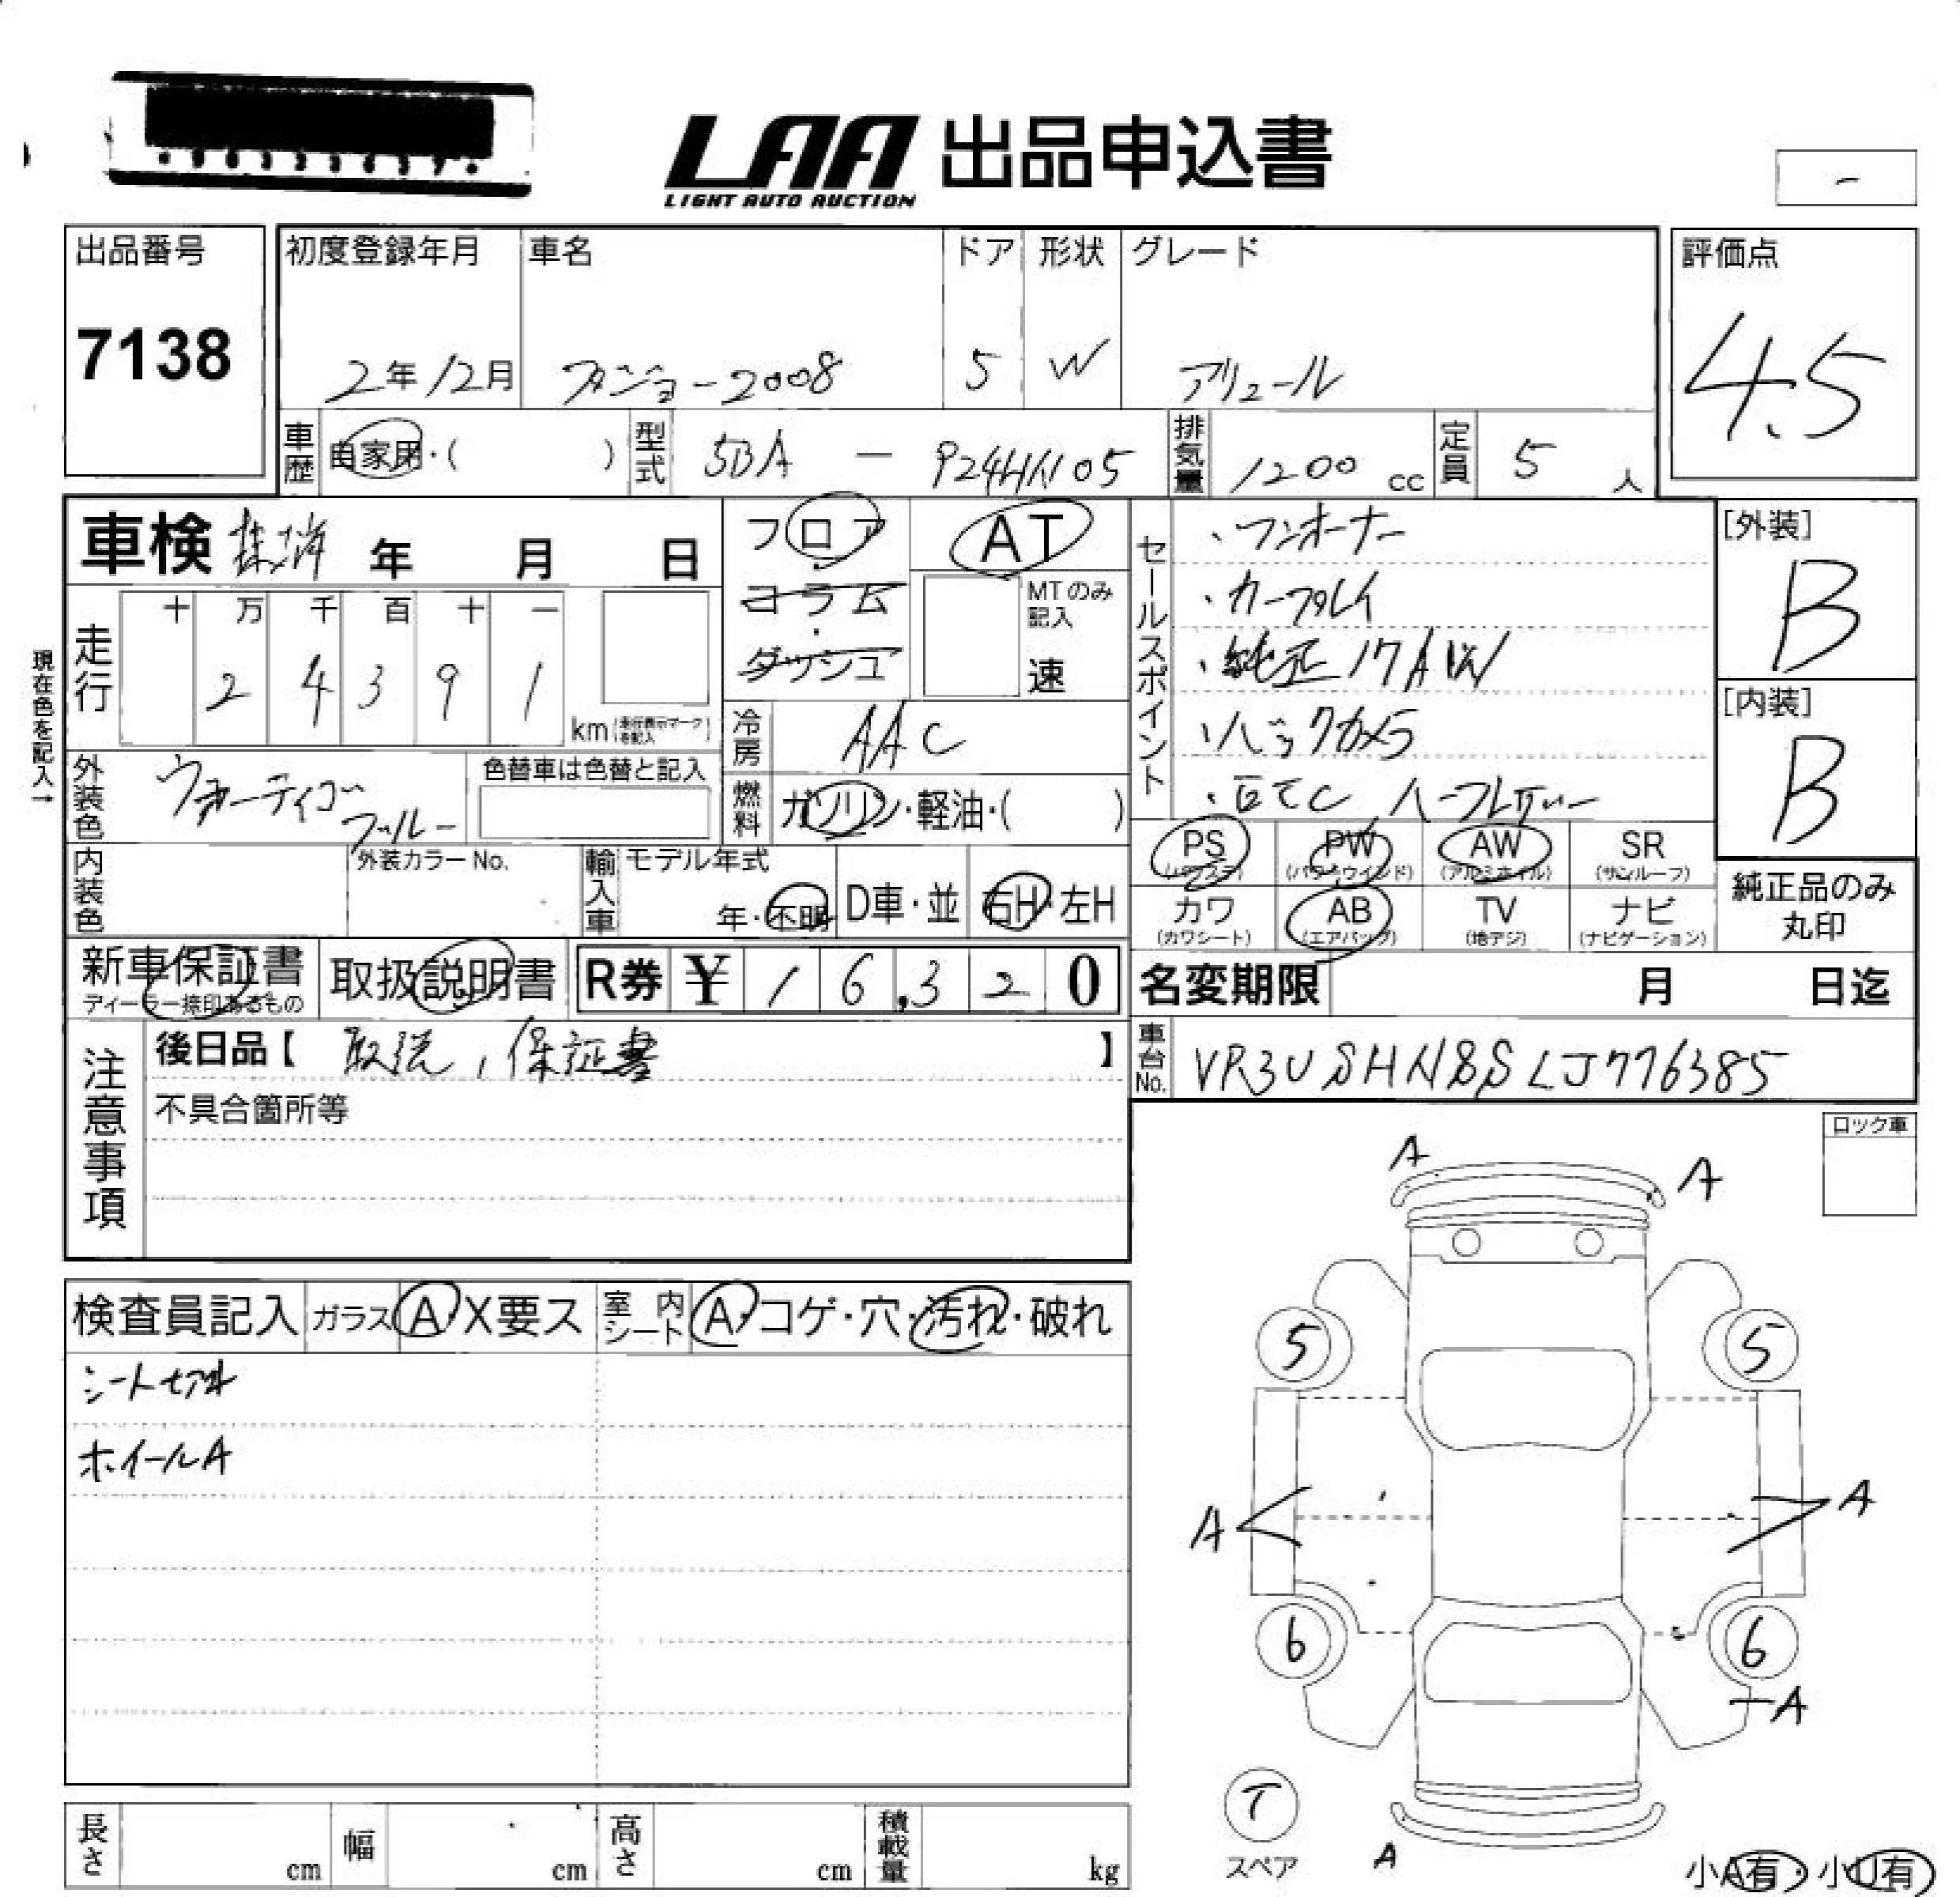 LAA 出品申込書
LIGHT AUTO AUCTION
-
出品番号
7138
初度登録年月 車名 ドア 形状 グレード
2年12月 プジョー2008 5 W アリュール
評価点
4.5
車歴 自家用・( ) 型式 5BA - P24HN05 排気量 1200 cc 定員 5 人
車検 抹消 年 月 日
フロア・コラム・ダッシュ
AT
MTのみ記入
速
セールスポイント
・ワンオーナー
・カープレイ
・純正17AW
・バックカメラ
・ETC ハーフレザー
[外装]
B
[内装]
B
現在色を記入→
走行
十 万 千 百 十 一
2 4 3 9 1
km (走行表示マークを記入)
冷房 AAC
燃料 ガソリン・軽油・( )
外装色 ヴォーティゴブルー
色替車は色替と記入
内装色
外装カラーNo.
輸入車 モデル年式
年・不明 D車・並 右H・左H
PS (パワステ) PW (パワーウインド) AW (アルミホイル) SR (サンルーフ)
カワ (カワシート) AB (エアバッグ) TV (地デジ) ナビ (ナビゲーション)
純正品のみ丸印
新車保証書
ディーラー捺印あるもの
取扱説明書
R券 ¥ 1 6,3 2 0
名変期限 月 日迄
注意事項
後日品【 取説, 保証書 】
不具合箇所等
車台No. VR3USHNSSLJ776385
ロック車
検査員記入 ガラス A・X要ス 室内シート A・コゲ・穴・汚れ・破れ
ホイールA
A
A
5
5
A
A
6
6
A
T
スペア
A
小A有・小U有
長さ cm 幅 cm 高さ cm 積載量 kg